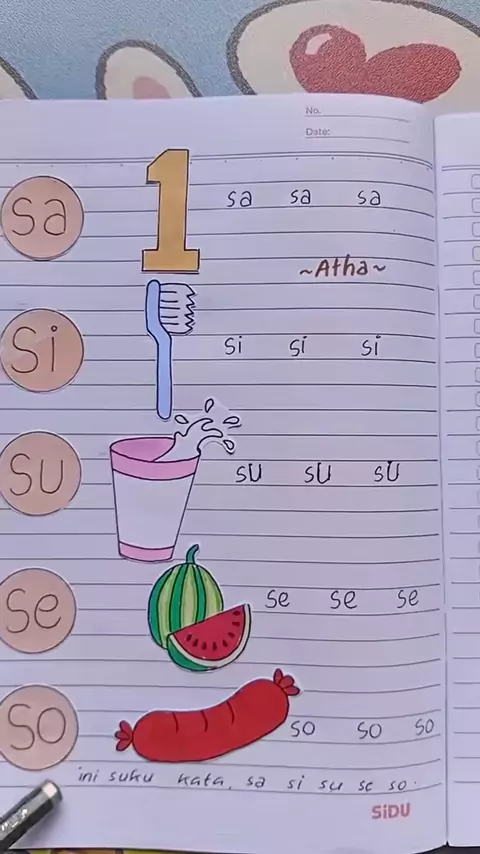 No.
Date:
sa
1
sa sa sa
~Atha~
si
si si si
su
su su su
se
se se se
so
so so so
ini suku kata, sa si su se so.
SiDU